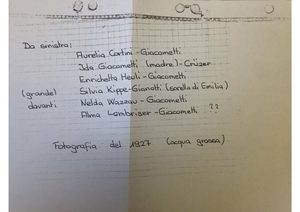 Da sinistra:
Aurelia Cortini-Giacometti
Ida Giacometti (madre)-Crüzer
Enrichetta Heuli-Giacometti
Silvia Kippe-Gianotti (sorella di Emilia)
(grande)
davanti: Nelda Wazzau-Giacometti
Alma Lambriser-Giacometti ??
Fotografia del 1927 (acqua grossa)